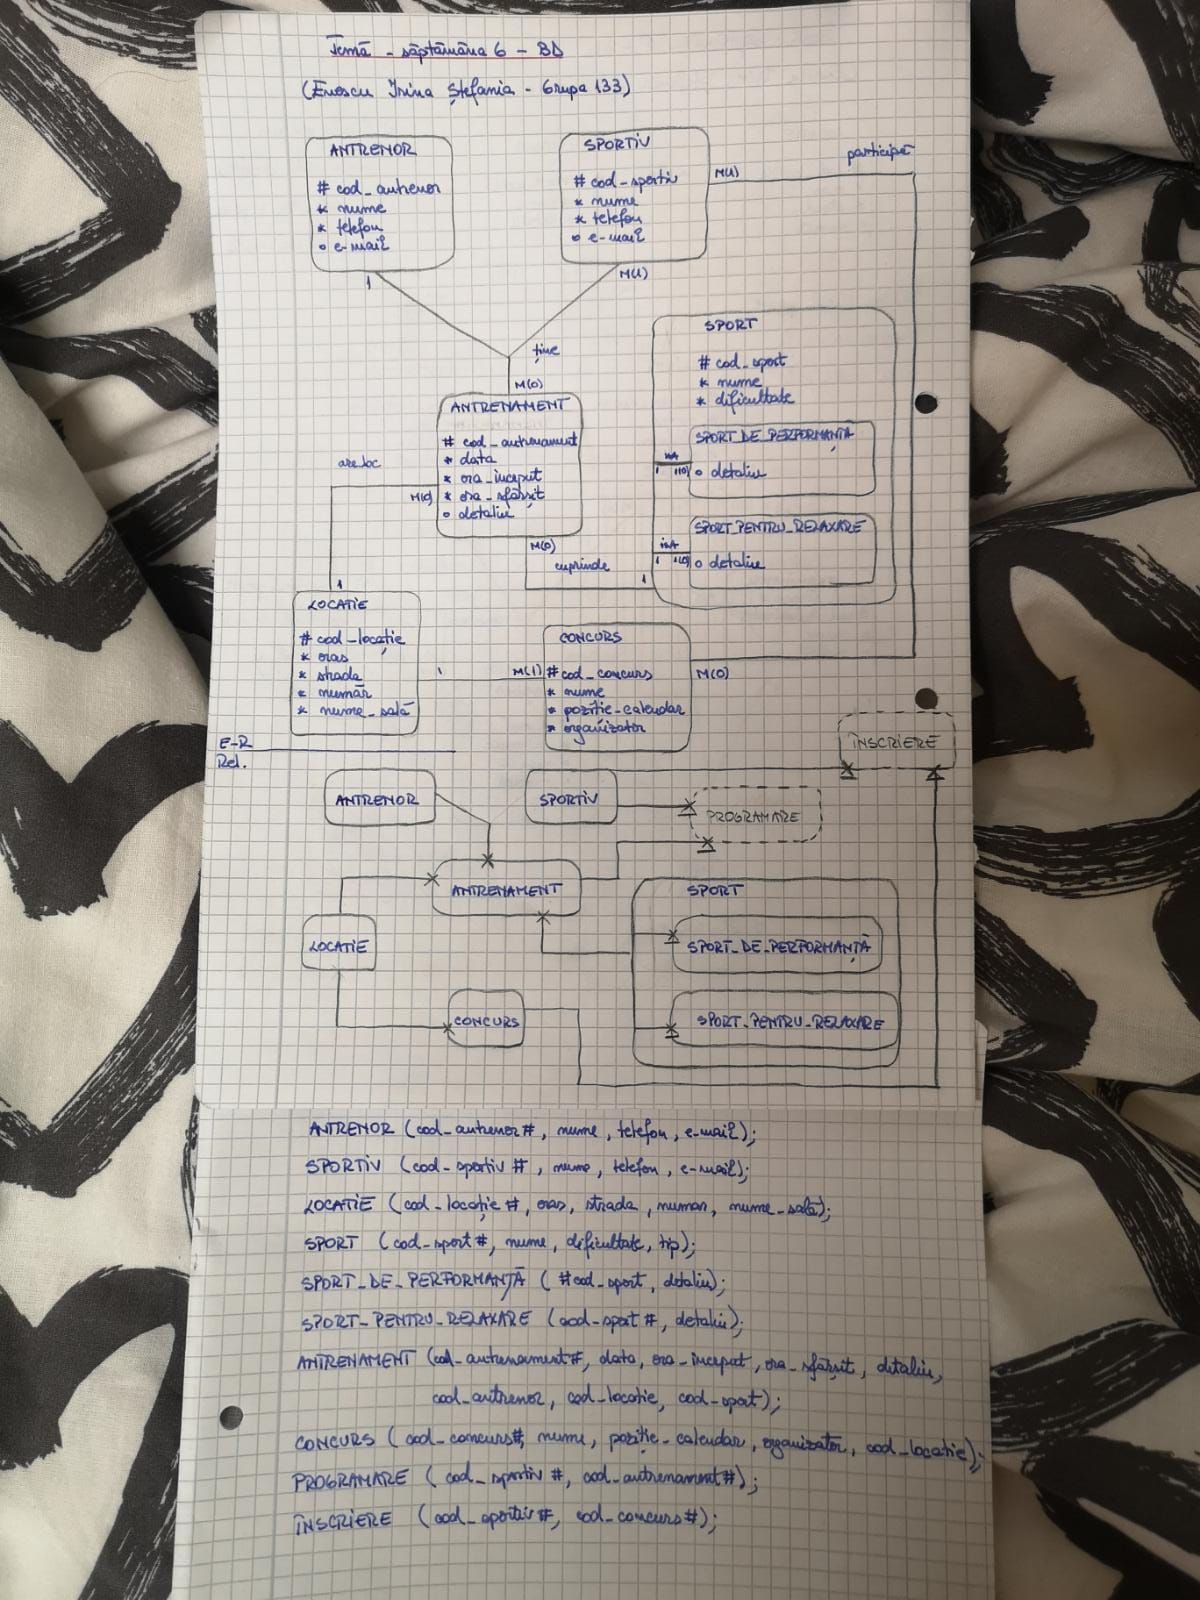 Temă - săptămâna 6 - BD
(Enescu Irina Ștefania - Grupa 133)
ANTRENOR
# cod_antrenor
* nume
* telefon
o e-mail
1
SPORTIV
# cod_sportiv
* nume
* telefon
o e-mail
M(1)
M(1)
participă
ține
M(0)
ANTRENAMENT
# cod_antrenament
* data
* ora_inceput
* ora_sfârșit
o detalii
are loc
M(0)
1
M(0)
cuprinde
1
SPORT
# cod_sport
* nume
* dificultate
SPORT_DE_PERFORMANȚĂ
o detalii
isA
1
1(0)
SPORT_PENTRU_RELAXARE
o detalii
isA
1
1(0)
LOCATIE
# cod_locație
* oras
* strada
* număr
* nume_sală
1
M(1)
CONCURS
# cod_concurs
* nume
* poziție_calendar
* organizator
M(0)
E-R
Rel.
ÎNSCRIERE
ANTRENOR
SPORTIV
PROGRAMARE
ANTRENAMENT
SPORT
LOCATIE
SPORT_DE_PERFORMANȚĂ
CONCURS
SPORT_PENTRU_RELAXARE
ANTRENOR (cod_antrenor#, nume, telefon, e-mail);
SPORTIV (cod_sportiv #, nume, telefon, e-mail);
LOCATIE (cod_locație #, oras, strada, numar, nume_sală);
SPORT (cod_sport#, nume, dificultate, tip);
SPORT_DE_PERFORMANȚĂ (#cod_sport, detalii);
SPORT_PENTRU_RELAXARE (cod_sport #, detalii);
ANTRENAMENT (cod_antrenament#, data, ora_inceput, ora_sfârșit, detalii,
cod_antrenor, cod_locatie, cod_sport);
CONCURS (cod_concurs#, nume, poziție_calendar, organizator, cod_locatie);
PROGRAMARE (cod_sportiv #, cod_antrenament#);
ÎNSCRIERE (cod_sportiv#, cod_concurs#);